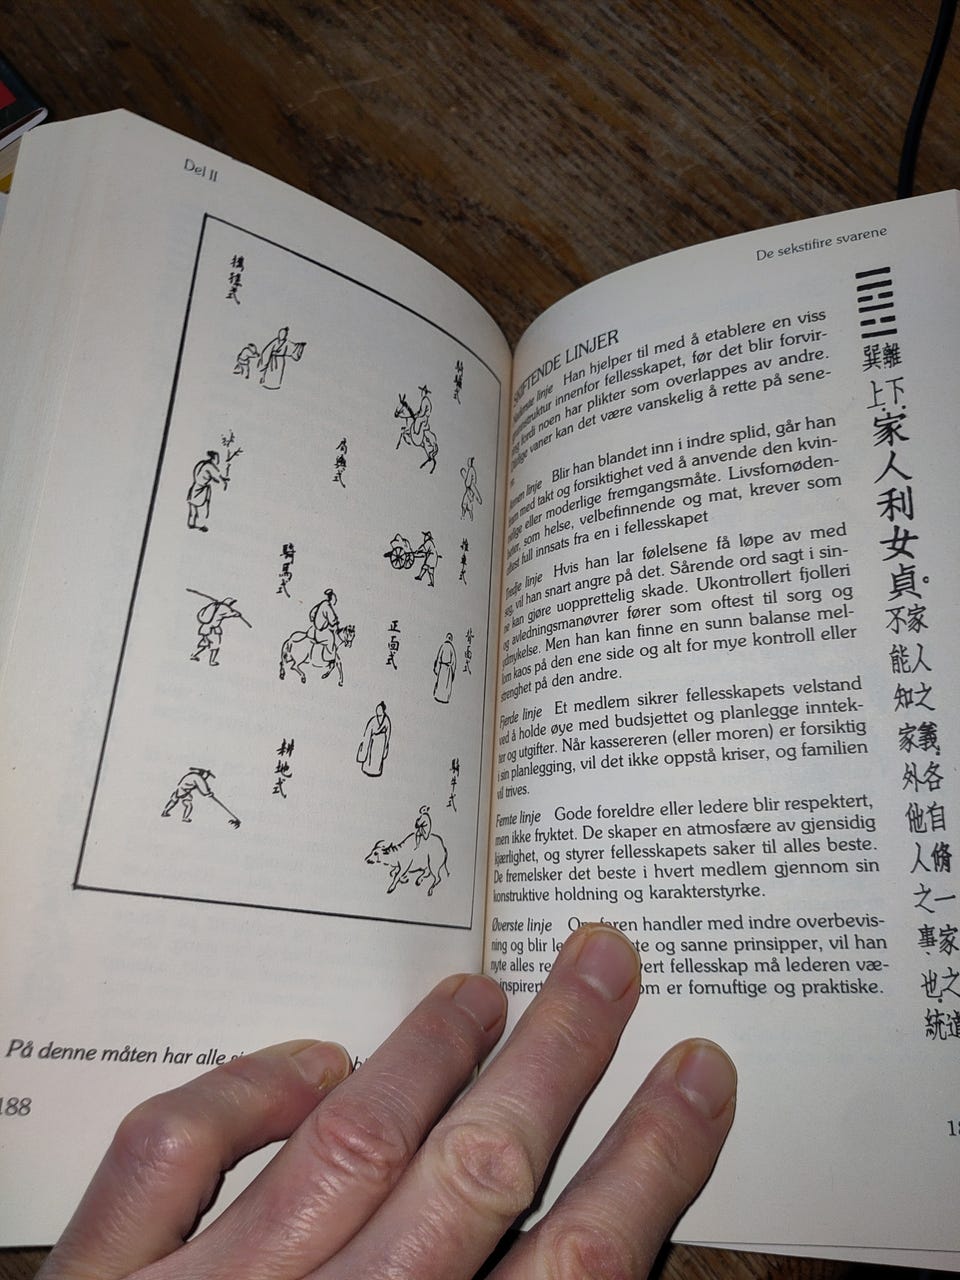 Del II
携徒式
騎驢式
肩輿式
推車式
騎馬式
正面式
背面式
耕地式
騎牛式
På denne måten har alle
188
De sekstifire svarene
SKIFTENDE LINJER
linje Han hjelper til med å etablere en viss
innenfor fellesskapet, før det blir forvir-
fordi noen har plikter som overlappes av andre.
vaner kan det være vanskelig å rette på sene-
linje Blir han blandet inn i indre splid, går han
med takt og forsiktighet ved å anvende den kvin-
eller moderlige fremgangsmåte. Livsfornøden-
som helse, velbefinnende og mat, krever som
full innsats fra en i fellesskapet
Tredje linje Hvis han lar følelsene få løpe av med
seg, vil han snart angre på det. Sårende ord sagt i sin-
ne kan gjøre uopprettelig skade. Ukontrollert fjolleri
og avledningsmanøvrer fører som oftest til sorg og
ydmykelse. Men han kan finne en sunn balanse mel-
lom kaos på den ene side og alt for mye kontroll eller
strenghet på den andre.
Fjerde linje Et medlem sikrer fellesskapets velstand
ved å holde øye med budsjettet og planlegge inntek-
ter og utgifter. Når kassereren (eller moren) er forsiktig
i sin planlegging, vil det ikke oppstå kriser, og familien
vil trives.
Femte linje Gode foreldre eller ledere blir respektert,
men ikke fryktet. De skaper en atmosfære av gjensidig
kjærlighet, og styrer fellesskapets saker til alles beste.
De fremelsker det beste i hvert medlem gjennom sin
konstruktive holdning og karakterstyrke.
Øverste linje Om faren handler med indre overbevis-
ning og blir te og sanne prinsipper, vil han
nyte alles vert fellesskap må lederen væ-
inspirert om er fornuftige og praktiske.
離下
巽上
家人利女貞。
家人之義各自脩一家之道
不能知家外他人之事也統